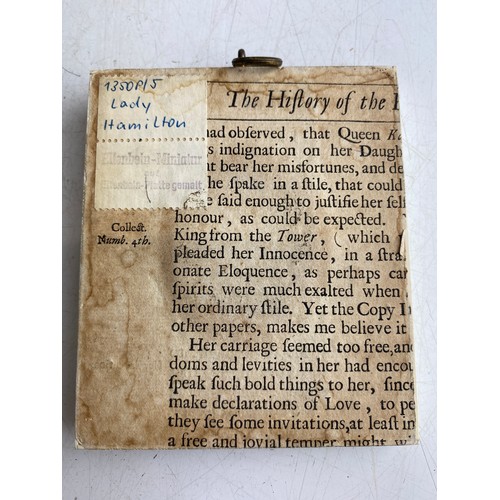 1350P/5
Lady
Hamilton
Elfenbein-Miniatur
auf
gemalt
The Hiſtory of the
had obſerved, that Queen
s indignation on her Daugh
t bear her misfortunes, and de
he ſpake in a ſtile, that could
e ſaid enough to juſtifie her ſel
honour, as could be expected.
Collect.
Numb. 4th.
King from the Tower, (which
pleaded her Innocence, in a ſtra
onate Eloquence, as perhaps can
ſpirits were much exalted when
her ordinary ſtile. Yet the Copy I
other papers, makes me believe it
Her carriage ſeemed too free, and
doms and levities in her had encou
ſpeak ſuch bold things to her, ſince
make declarations of Love, to pe
they ſee ſome invitations, at leaſt in
a free and jovial temper might wi